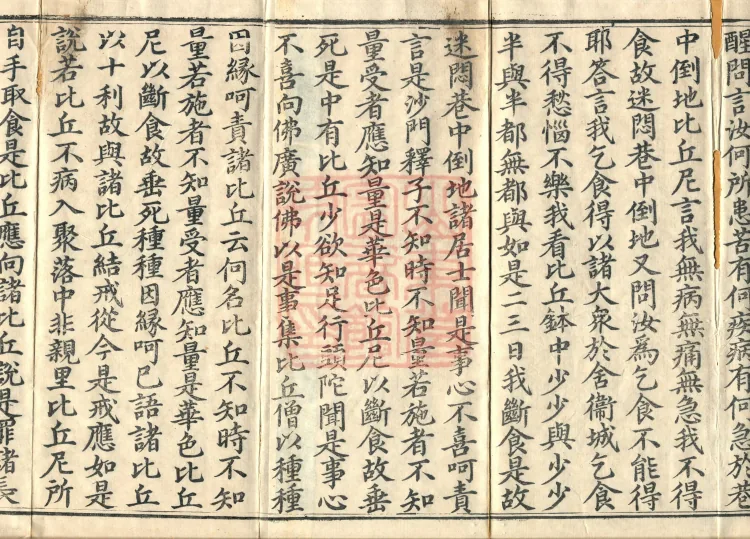 醒問言汝何所患苦有何疾病有何急於巷
中倒地比丘尼言我無病無痛無急我不得
食故迷悶巷中倒地又問汝為乞食不能得
耶荅言我乞食得以諸大衆於舍衞城乞食
不得愁惱不樂我看比丘鉢中少少與少少
半與半都無都與如是二三日我斷食是故
迷悶巷中倒地諸居士聞是事心不喜呵責
言是沙門釋子不知時不知量若施者不知
量受者應知量是華色比丘尼以斷食故垂
死是中有比丘少欲知足行頭陀聞是事心
不喜向佛廣說佛以是事集比丘僧以種種
因緣呵責諸比丘云何名比丘不知時不知
量若施者不知量受者應知量是華色比丘
尼以斷食故垂死種種因緣呵已語諸比丘
以十利故與諸比丘結戒從今是戒應如是
說若比丘不病入聚落中非親里比丘尼所
自手取食是比丘應向諸比丘說是罪諸長